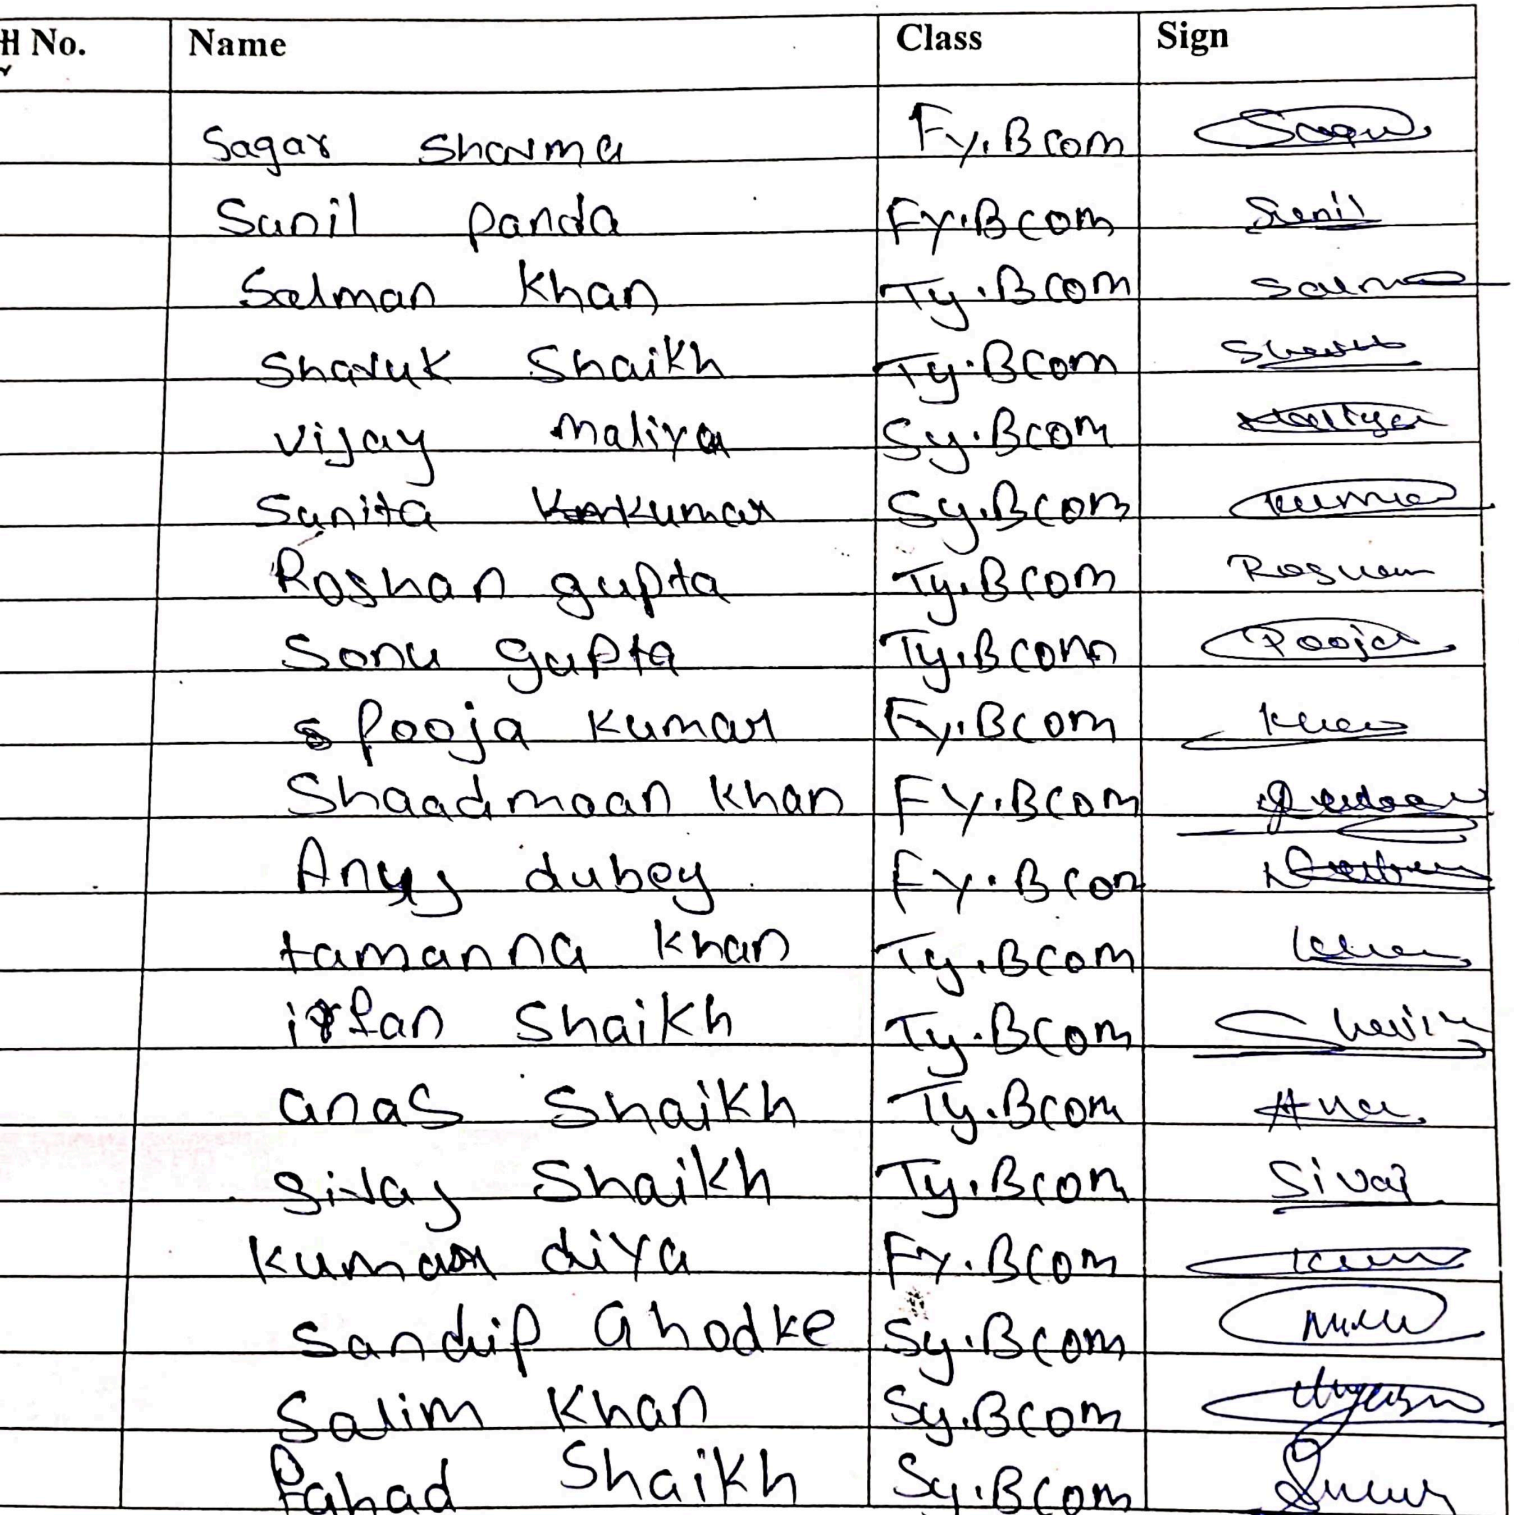 No. Name Class Sign
Sagar Sharma Fy.Bcom
Sunil Panda Fy.Bcom Sunil
Salman Khan Ty.Bcom
Sharuk Shaikh Ty.Bcom
Vijay Maliya Sy.Bcom
Sunita Kumar Sy.Bcom
Roshan gupta Ty.Bcom
Sonu gupta Ty.Bcom Pooja
Pooja Kumar Fy.Bcom
Shaadmaan Khan Fy.Bcom
Anuj dubey Fy.Bcom
tamanna Khan Ty.Bcom
irfan Shaikh Ty.Bcom
anas Shaikh Ty.Bcom
Shaikh Ty.Bcom
Kumar diya Fy.Bcom
Sandip Ghodke Sy.Bcom
Salim Khan Sy.Bcom
Fahad Shaikh Sy.Bcom